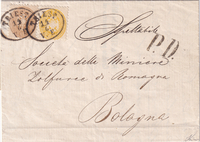 TRIEST
TRIEST
Spettabile
P.D.
Società delle Miniere
Zolfuree di Romagna
Bologna